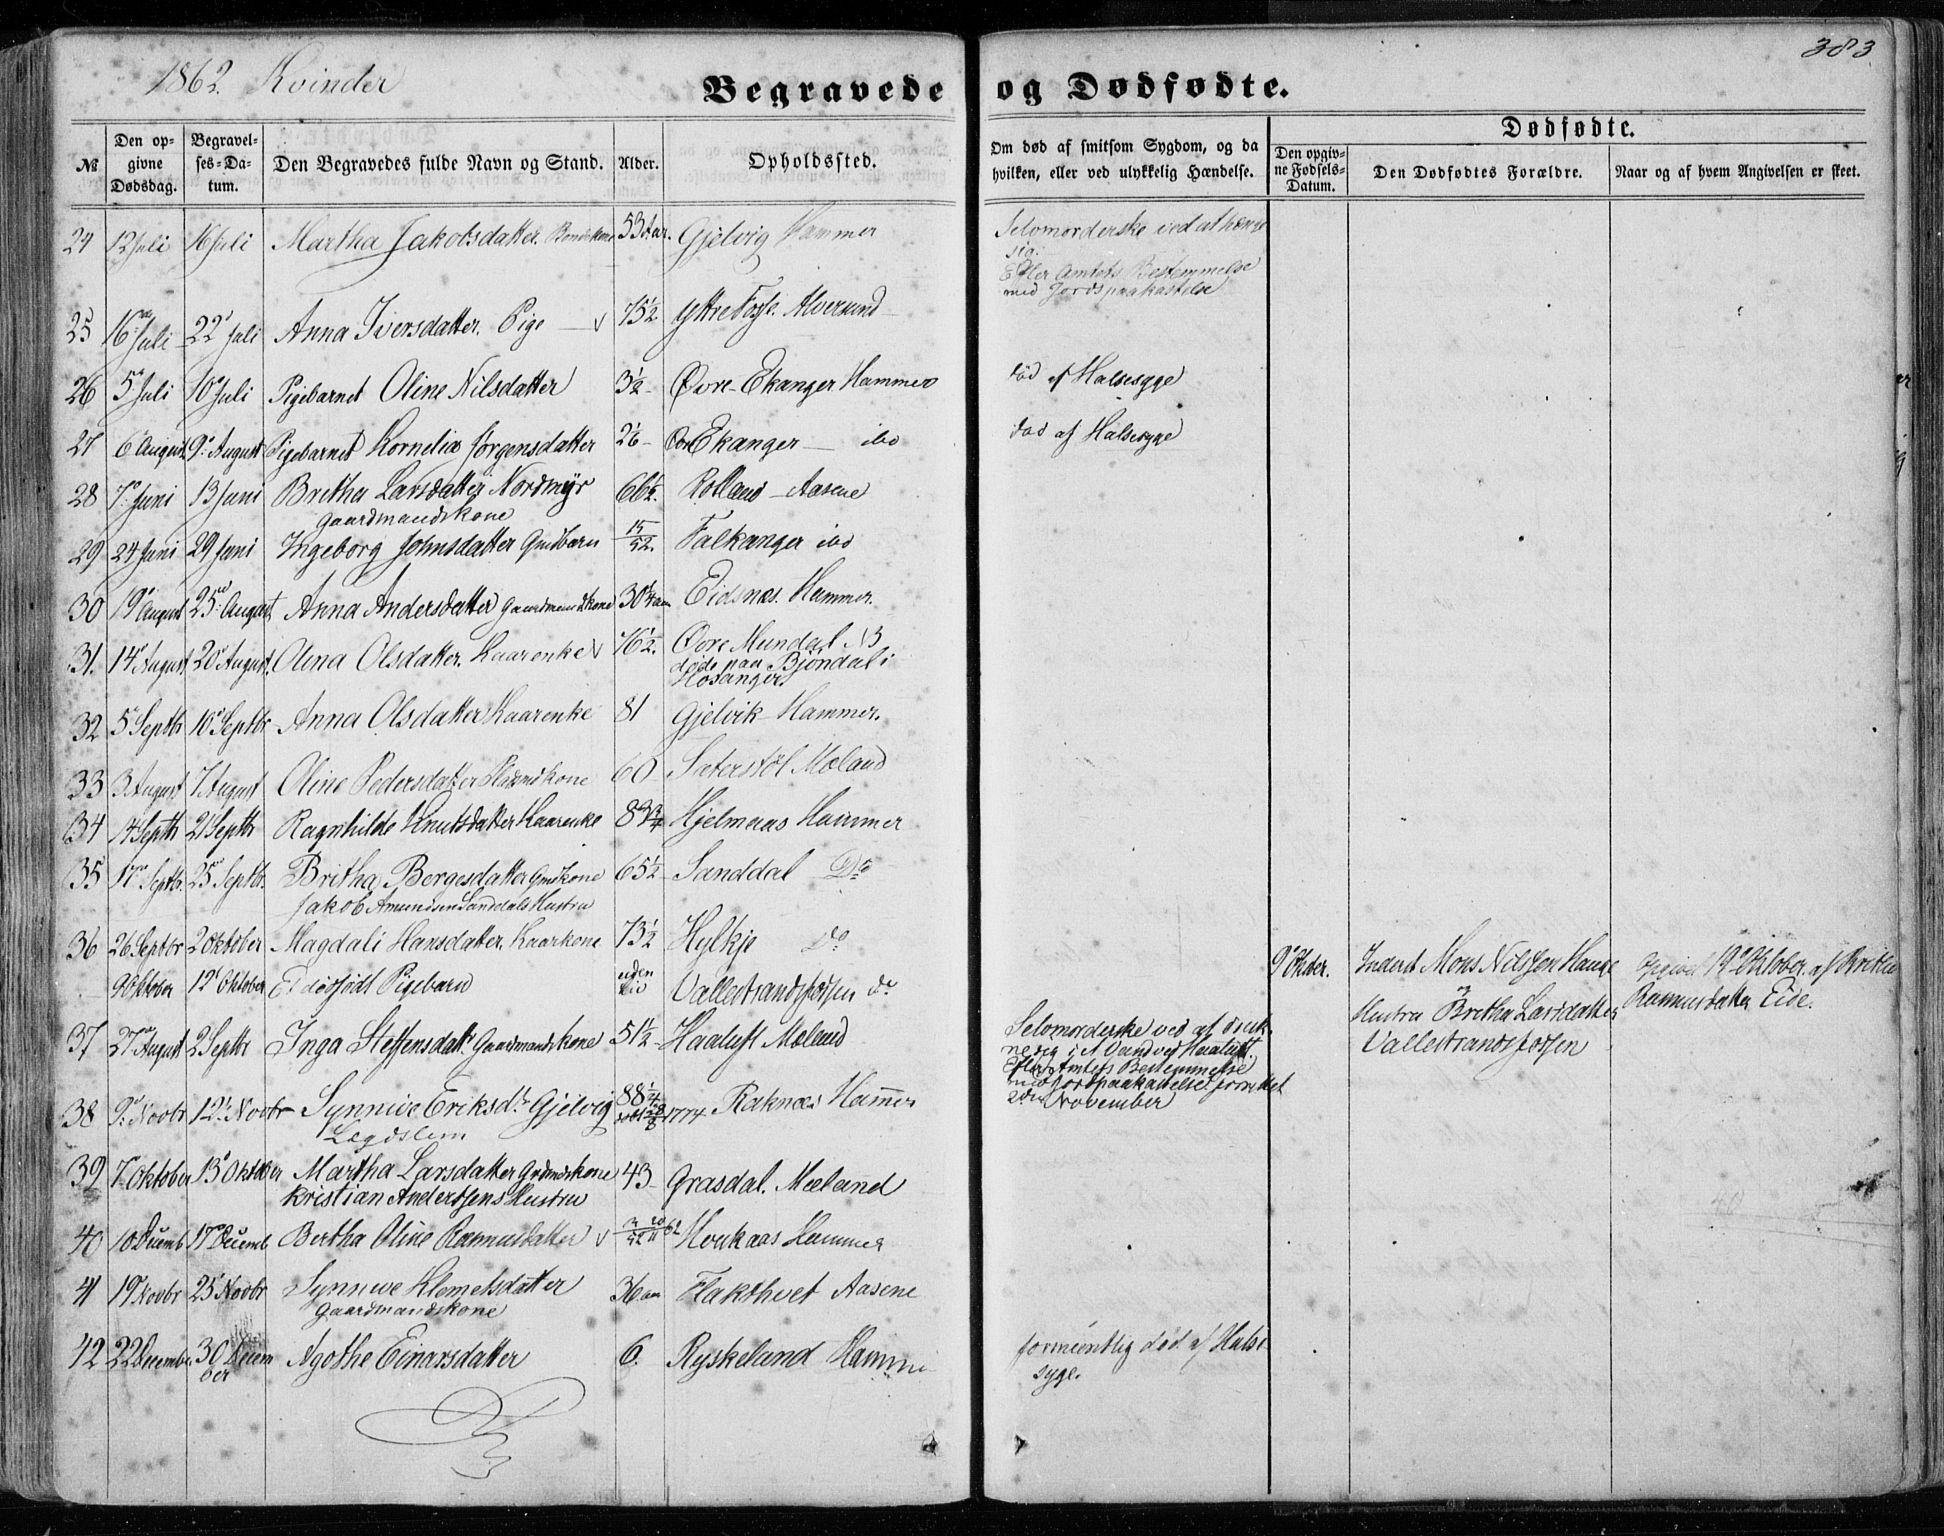 383.
1862. Kvinder
Begravede og Dødfødte.
№ | Den opgivne Dødsdag. | Begravelses-Datum. | Den Begravedes fulde Navn og Stand. | Alder. | Opholdssted. | Om død af smitsom Sygdom, og da hvilken, eller ved ulykkelig Hændelse. | Dødfødte. | Den opgivne Fødsels-Datum. | Den Dødfødtes Forældre. | Naar og af hvem Angivelsen er skeet.
24 12 Juli 16 Juli Martha Jakobsdatter. Bondekone 53 Aar. Gjelvig Hammer Selvmorderske ved at hænge
sig.
Efter Amtets Bestemmelse
med Jordspaakastelse
25 16 Juli 22 Juli Anna Iversdatter. Pige 75½ Yttre Fosse. Alversund
26 5 Juli 10 Juli Pigebarnet Oline Nilsdatter 3½ Øvre-Ekanger Hammer død af Halsesyge
27 6 August 9 August Pigebarnet Kornelia Jørgensdatter Ekanger ibd død af Halsesyge
28 7 Juni 13 Juni Britha Larsdatter Nordmyr 66½. Rolland Aasene
Gaardmandskone
29 24 Juni 29 Juni Ingeborg Johnsdatter Gmdbarn 15/52. Falkanger ibd
30 19 August 25 August Anna Andersdatter Gaardmandskone 30¼ Eidsnæs. Hammer.
31. 14 August 20 August. Olina Olsdatter. Kaarenke 76½. Øvre Mundal NB
døde paa Bjøndal i
Hosanger
32 5 Septbr 10 Septbr Anna Olsdatter Kaarenke 81 Gjelvik Hammer.
33 3 August 7 August Oline Pedersdatter kone 60 Sæterstøl Mæland
34 14 Septbr 21 Septbr Ragnhilde Knutsdatter Kaarenke 83¾ Hjelmaas Hammer
35 17 Septbr. 25 Septbr. Britha Bergesdatter Gmdkone 65½ Sanddal Do
Jakob Amundsen Sanddals Hustru
36 26 Septbr 2 Oktober Magdali Hansdatter. Kaarkone 73½ Hylkje do
9 Oktober 12 Oktober Et dødfødt Pigebarn uden Liv Vallestrandsfossen do 9 Oktober. Inderst Mons Nilssen Hauge Opgivet 19 Oktober af Britha
og
Hustru Britha Larsdatter Rasmusdatter Eide.
Vallestrandsfossen
37 27 August 2 Septbr Inga Steffensdatt. Gaardmandskone 51½ Haaluft Mæland Selvmorderske ved at druk-
ne sig i Vand ved Haaluft.
Efter Amtets Bestemmelse
med Jordpaakastelse forrettet
2den November
38 9 Novbr 12 Novbr Synnive Eriksdr Gjelvig 88¼ 1774 Raknæs Hammer
Lægdslem
39 7 Oktober 13 Oktober Martha Larsdatter Grdmdskone 43 Grasdal. Mæland
Kristian Anderssens Hustru
40 10 Decemb 17 Decemb Bertha Oline Rasmusdatter Houkaas Hammer
41 19 Novbr 25 Novbr Synnive Klemetsdatter 36 Flakthvet Aasene
Gaardmandskone
42 22 December 30 Decem
ber Agothe Einarsdatter 6. Ryskeland Hammer formentlig død af Halse
syge.